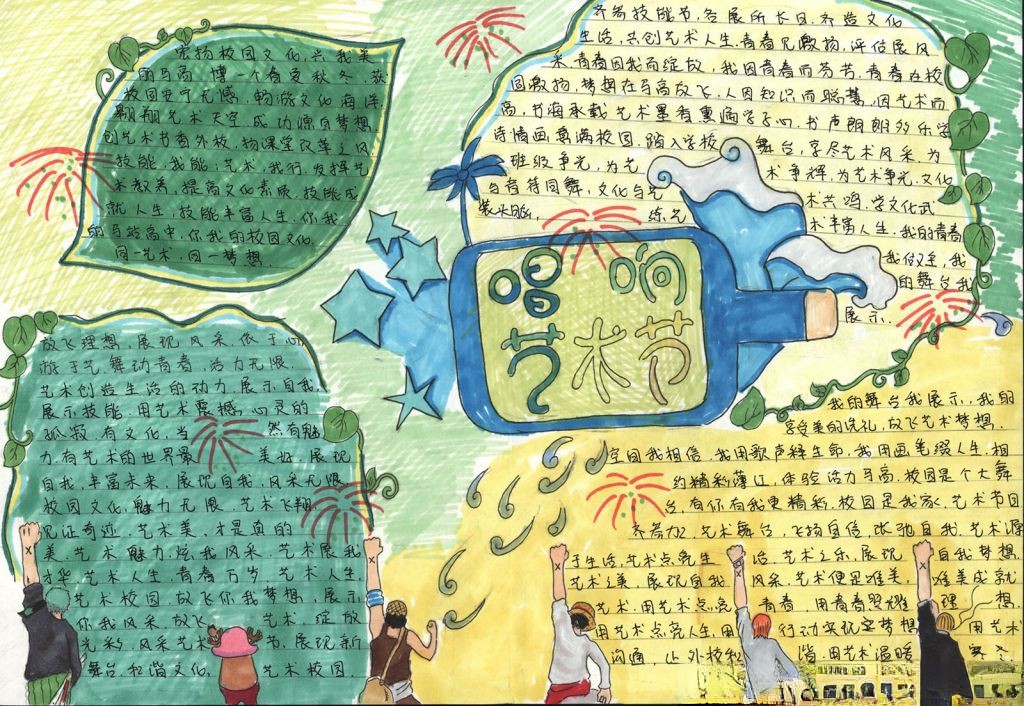 宏扬校园文化,兴我美
的马高,博一个春夏秋冬,获
校园安宁无憾,畅游文化海洋,
翱翔艺术天空,成功源自梦想,
创艺术节奇外校,物课堂改革之风,
技能,我能,艺术,我行,发挥艺
术教养,提高文化素质,技能成
就人生,技能丰富人生,你我
的马站高中,你我的校园文化,
同一艺术,同一梦想.
齐奏技能节,各展所长日,齐造文化
生活,共创艺术人生,青春见激扬,评估展风
采,青春因我而绽放,我因青春而芬芳,青春在校
园激扬,梦想在马高放飞,人因知识而聪慧,因艺术而
高,书海承载艺术墨香熏陶学子心,书声朗朗多乐学
诗情画意满校园,踏入学校 舞台,享尽艺术风采,为
班级争光,为艺 术争辉,为艺术争光,文化
与育待同舞,文化与艺 术共鸣,学文化武
装头脑, 练艺 术丰富人生,我的青春
我做主,我
的舞台我
展示.
唱响
艺术节
放飞理想,展现风采,依于心,
游于艺,舞动青春,活力无限,
艺术创造生活的动力,展示自我,
展示技能,用艺术震撼心灵的
孤寂,有文化,当 然有魅
力,有艺术的世界最 美好,展现
自我,丰富未来,展现自我,风采无限
校园文化,魅力无限,艺术飞翔,
见证奇迹,艺术美,才是真的
美,艺术魅力炫我风采,艺术展我
才华,艺术人生,青春万岁,艺术人生,
艺术校园,放飞你我梦想,展示
你我风采,放飞 艺术,绽放
光彩,风采艺术 节,展现新
舞台,和谐文化, 艺术校园.
我的舞台我展示,我的
享受美的洗礼,放飞艺术梦想.
空间我相信,我用歌声绎生命,我用画笔缀人生,相
约精彩薄江,体验活力马高,校园是个大舞
台,有你有我更精彩,校园是我家,艺术节日
齐奏力,艺术舞台,飞扬自信,张弛自我,艺术源
于生活,艺术点亮生 活,艺术之乐,展现 自我梦想,
艺术之美,展现自我 风采,艺术便是唯美,唯美成就
艺术,用艺术点亮 青春,用青春照耀 理想.
用艺术点亮人生,用 行动实现室梦想, 用艺术
沟通,让外校和 谐,用艺术温暖